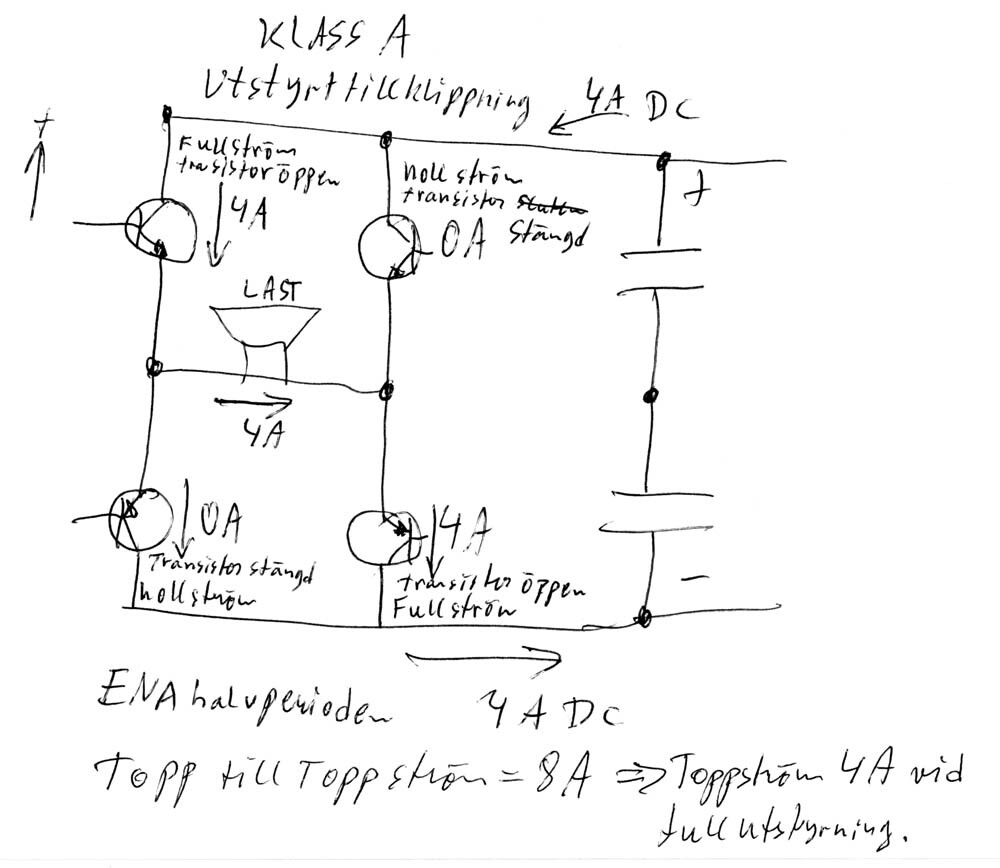 KLASS A
Utstyrt till klippning
4A DC
+
Fullström
transistor öppen
4A
Noll ström
transistor
0A Stängd
+
LAST
4A
0A
Transistor stängd
Nollström
4A
transistor öppen
Fullström
−
ENA halvperioden
4A DC
Topp till Toppström = 8A => Toppström 4A vid
full utstyrning.